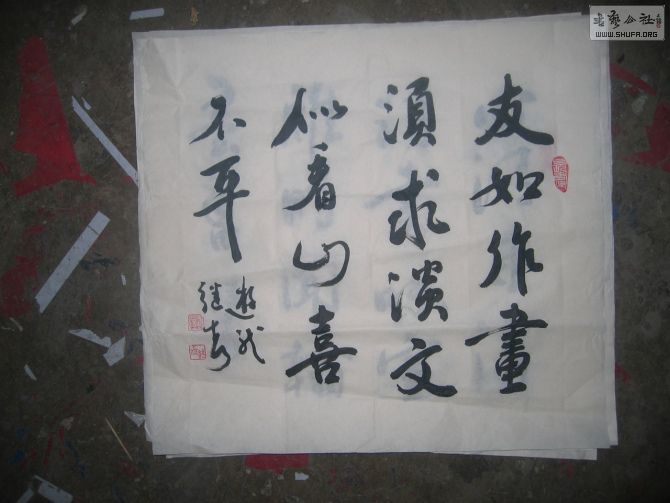 友如作畫
須求淡文
似看山喜
不平
遊武
继安
書藝公社
WWW.SHUFA.ORG